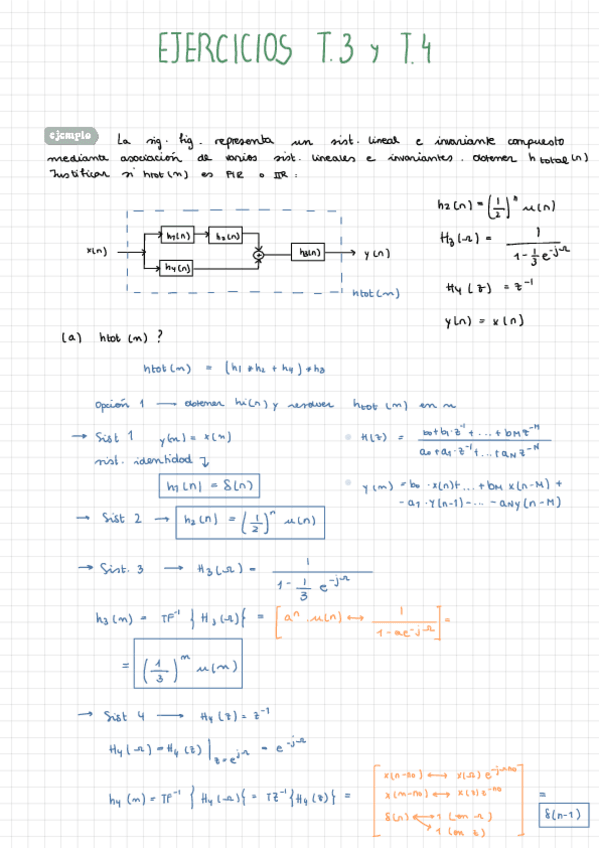 EJERCICIOS T.3 y T.4
ejemplo La sig. fig. representa un sist. lineal e invariante compuesto
mediante asociación de varios sist. lineales e invariantes. obtener htotal(n)
Justificar si htot(n) es FIR o IIR:
h2(n) = (1/2)^n u(n)
H3(Ω) = 1 / (1 - 1/3 e^-jΩ)
H4(z) = z^-1
y(n) = x(n)
x(n) h1(n) h2(n) + h3(n) y(n)
h4(n)
htot(n)
(a) htot(n)?
htot(n) = (h1 * h2 + h4) * h3
Opción 1 → obtener hi(n) y resolver htot(n) en n
→ Sist 1 y(n) = x(n)
sist. identidad ↓
h1(n) = δ(n)
• H(z) = (b0+b1·z^-1 + ... + bM z^-M) / (a0+a1·z^-1 + ... + aN z^-N)
• y(n) = b0·x(n)+ ... + bM x(n-M) +
- a1·y(n-1) - ... - aNy(n-M)
→ Sist 2 → h2(n) = (1/2)^n u(n)
→ Sist. 3 → H3(Ω) = 1 / (1 - 1/3 e^-jΩ)
h3(n) = TF^-1 { H3(Ω) } = [ a^n · u(n) ↔ 1 / (1 - ae^-jΩ) ] =
= (1/3)^n u(n)
→ Sist 4 → H4(z) = z^-1
H4(Ω) = H4(z) |z=e^jΩ = e^-jΩ
h4(n) = TF^-1 { H4(Ω) } = TZ^-1 { H4(z) } = [ x(n-n0) ↔ X(Ω) e^-jΩn0
x(n-n0) ↔ X(z) z^-n0
δ(n) ↔ 1 (en Ω)
↘ 1 (en z) ] = δ(n-1)